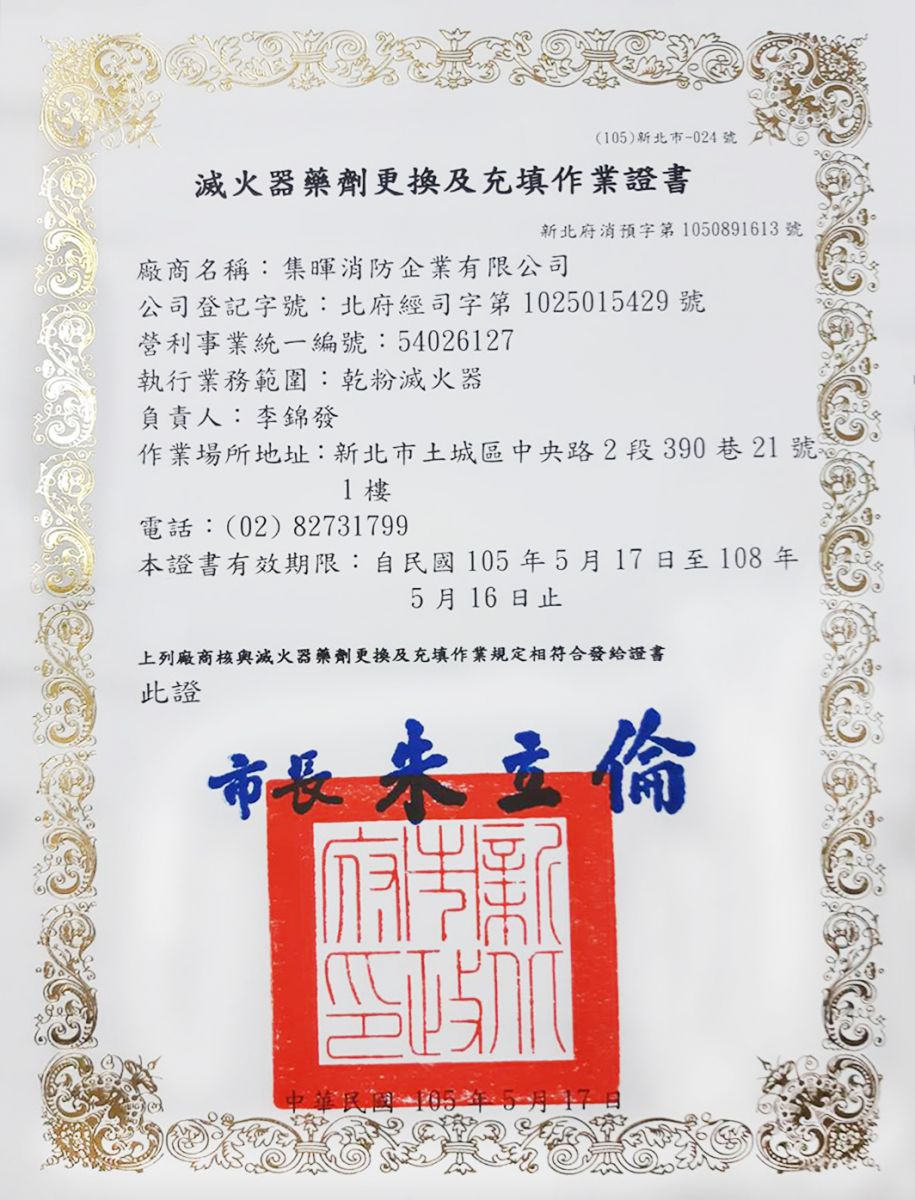 (105)新北市-024號
滅火器藥劑更換及充填作業證書
新北府消預字第1050891613號
廠商名稱：集暉消防企業有限公司
公司登記字號：北府經司字第1025015429號
營利事業統一編號：54026127
執行業務範圍：乾粉滅火器
負責人：李錦發
作業場所地址：新北市土城區中央路2段390巷21號
1樓
電話：(02) 82731799
本證書有效期限：自民國105年5月17日至108年
5月16日止
上列廠商核與滅火器藥劑更換及充填作業規定相符合發給證書
此證
市長 朱立倫
新北市政府印
中華民國 105年5月17日